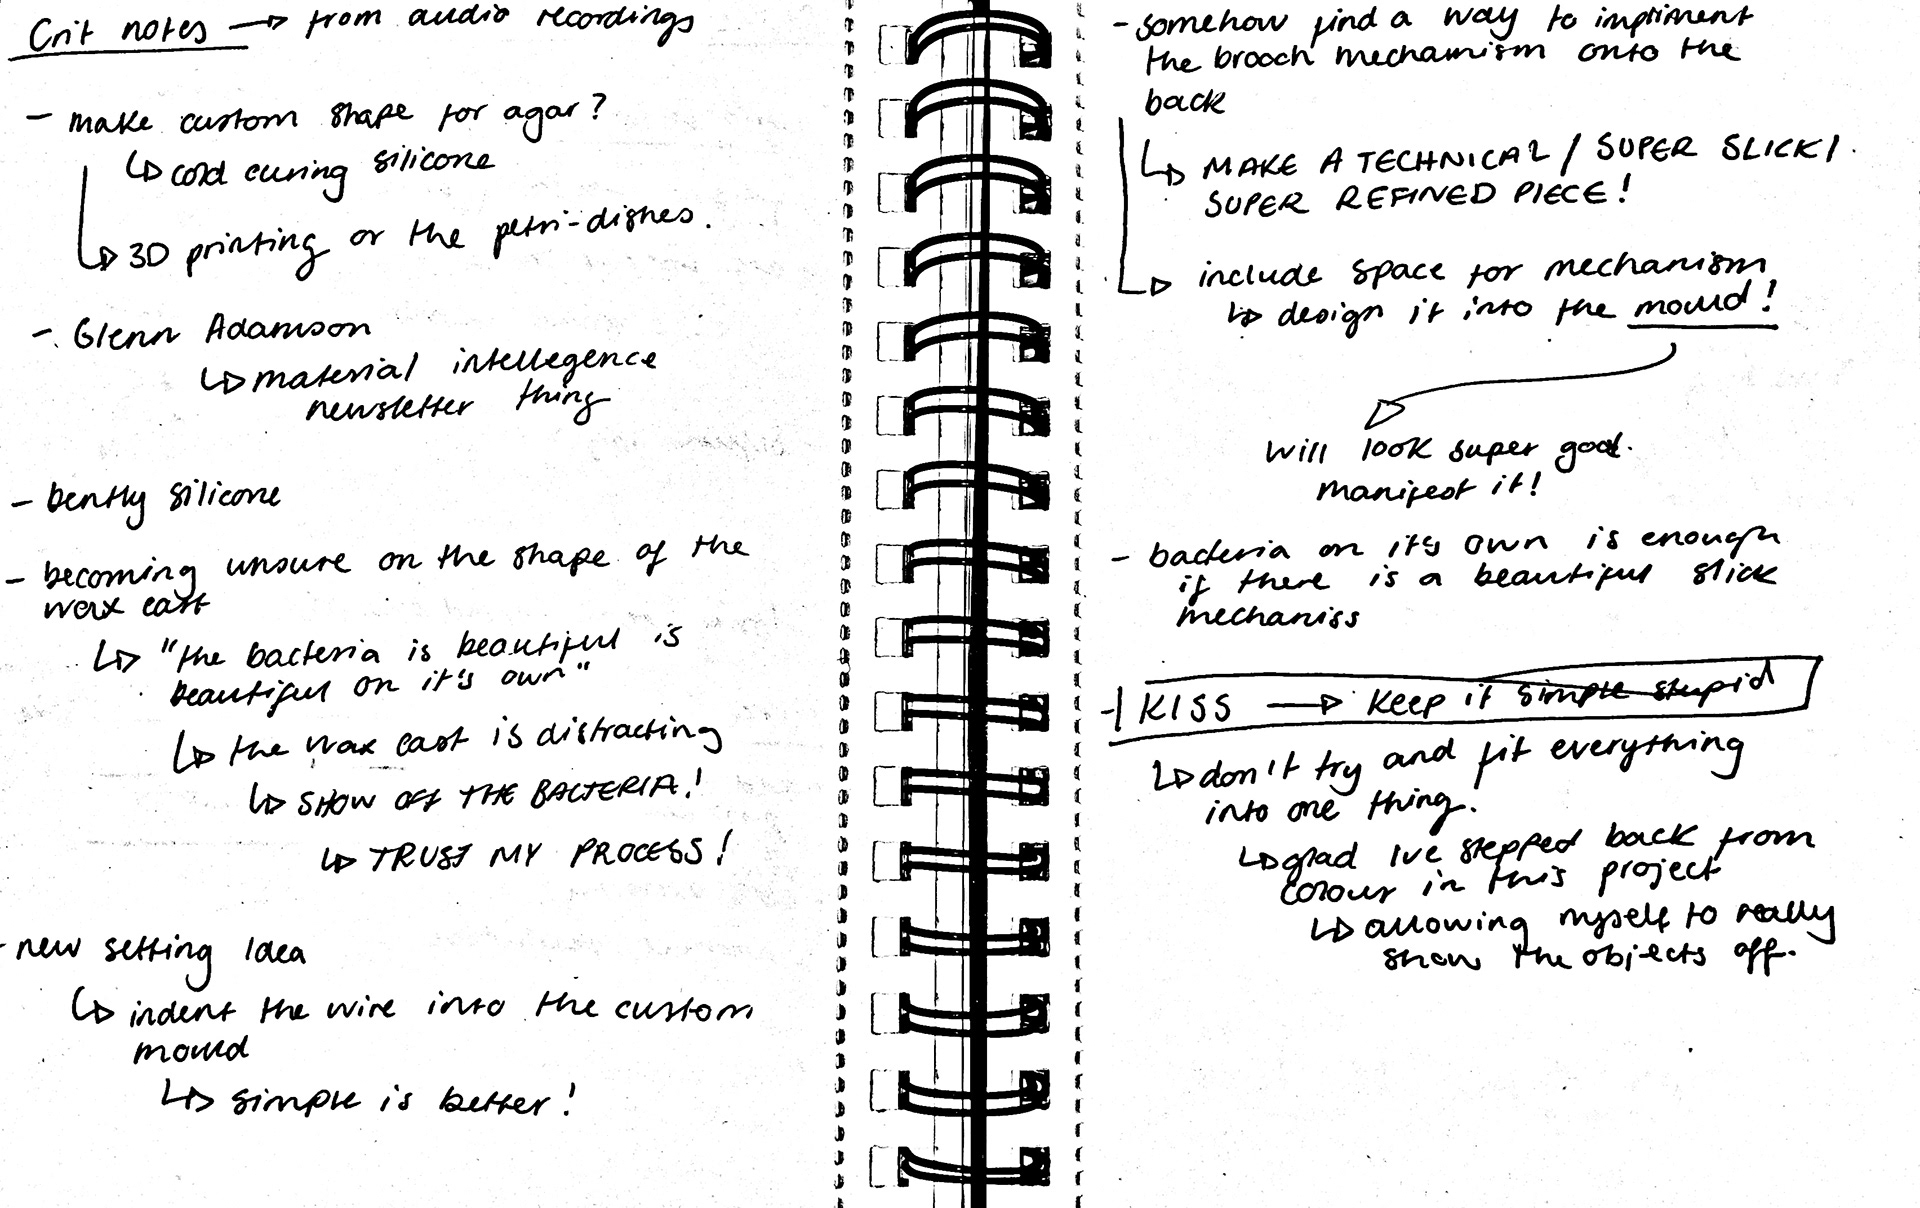 Crit notes → from audio recordings
- make custom shape for agar?
↳ cold curing silicone
↳ 3D printing or the petri-dishes.
- Glenn Adamson
↳ material intellegence
newsletter thing
- bently silicone
- becoming unsure on the shape of the
wax cast
↳ "the bacteria is beautiful is
beautiful on it's own"
↳ the wax cast is distracting
↳ SHOW OFF THE BACTERIA!
↳ TRUST MY PROCESS!
- new setting Idea
↳ indent the wire into the custom
mould
↳ simple is better!
- somehow find a way to impliment
the brooch mechamism onto the
back
↳ MAKE A TECHNICAL / SUPER SLICK /
SUPER REFINED PIECE!
↳ include space for mechanism
↳ design it into the mould!
Will look super good.
manifest it!
- bacteria on it's own is enough
if there is a beautiful slick
mechaniss
- KISS → Keep it simple stupid
↳ don't try and fit everything
into one thing.
↳ glad Ive stepped back from
colour in this project
↳ allowing myself to really
show the objects off.